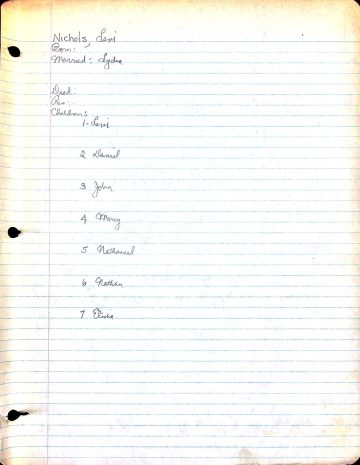 Nichols, Levi
Born:
Married: Lydia
Died:
Res:
Children:
1- Levi
2 Daniel
3 John
4 Mercy
5 Nathaniel
6 Nathan
7 Elisha